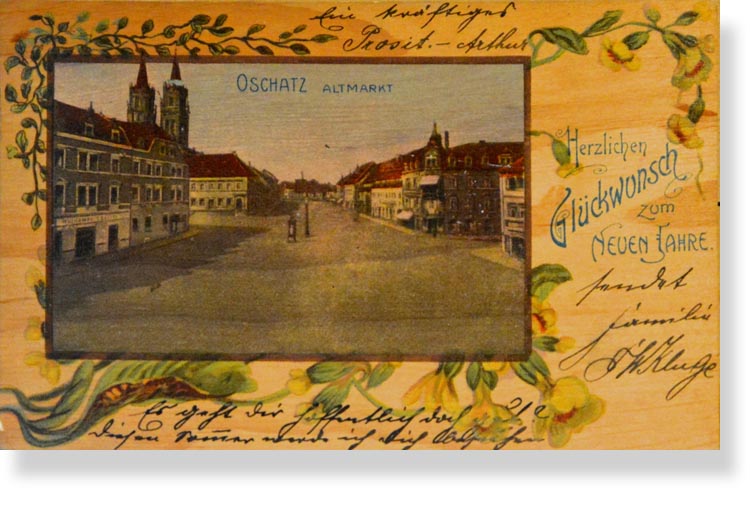 Ein kräftiges
Prosit. - Arthur
OSCHATZ ALTMARKT
Herzlichen
Glückwunsch
zum
NEUEN JAHRE.
sendet
Familie
Kluge
Es geht dir hoffentlich doch
diesen Sommer werde ich dich